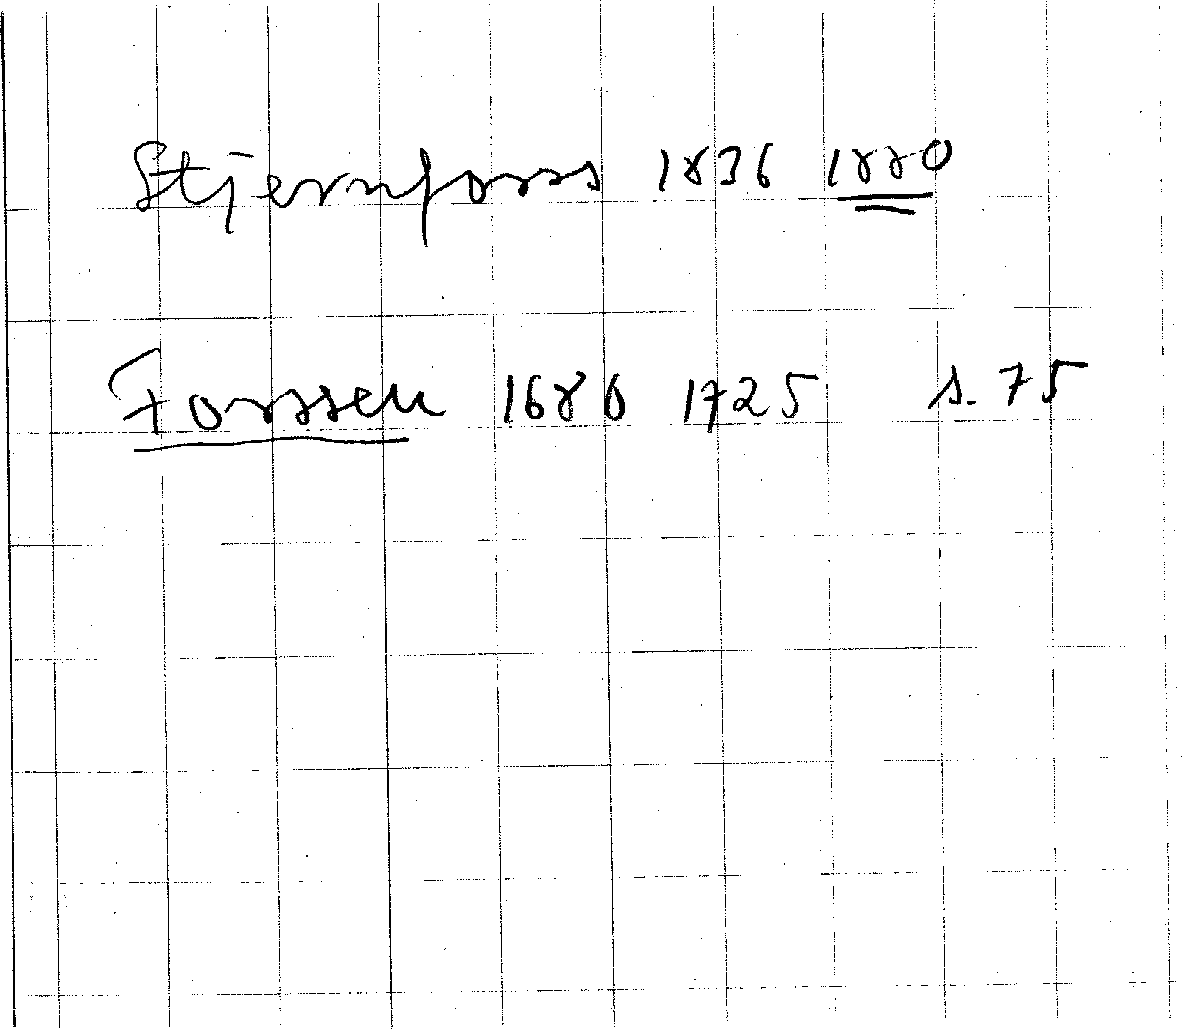 Stjernforss 1836 1880
Forssell 1686 1725 s. 75